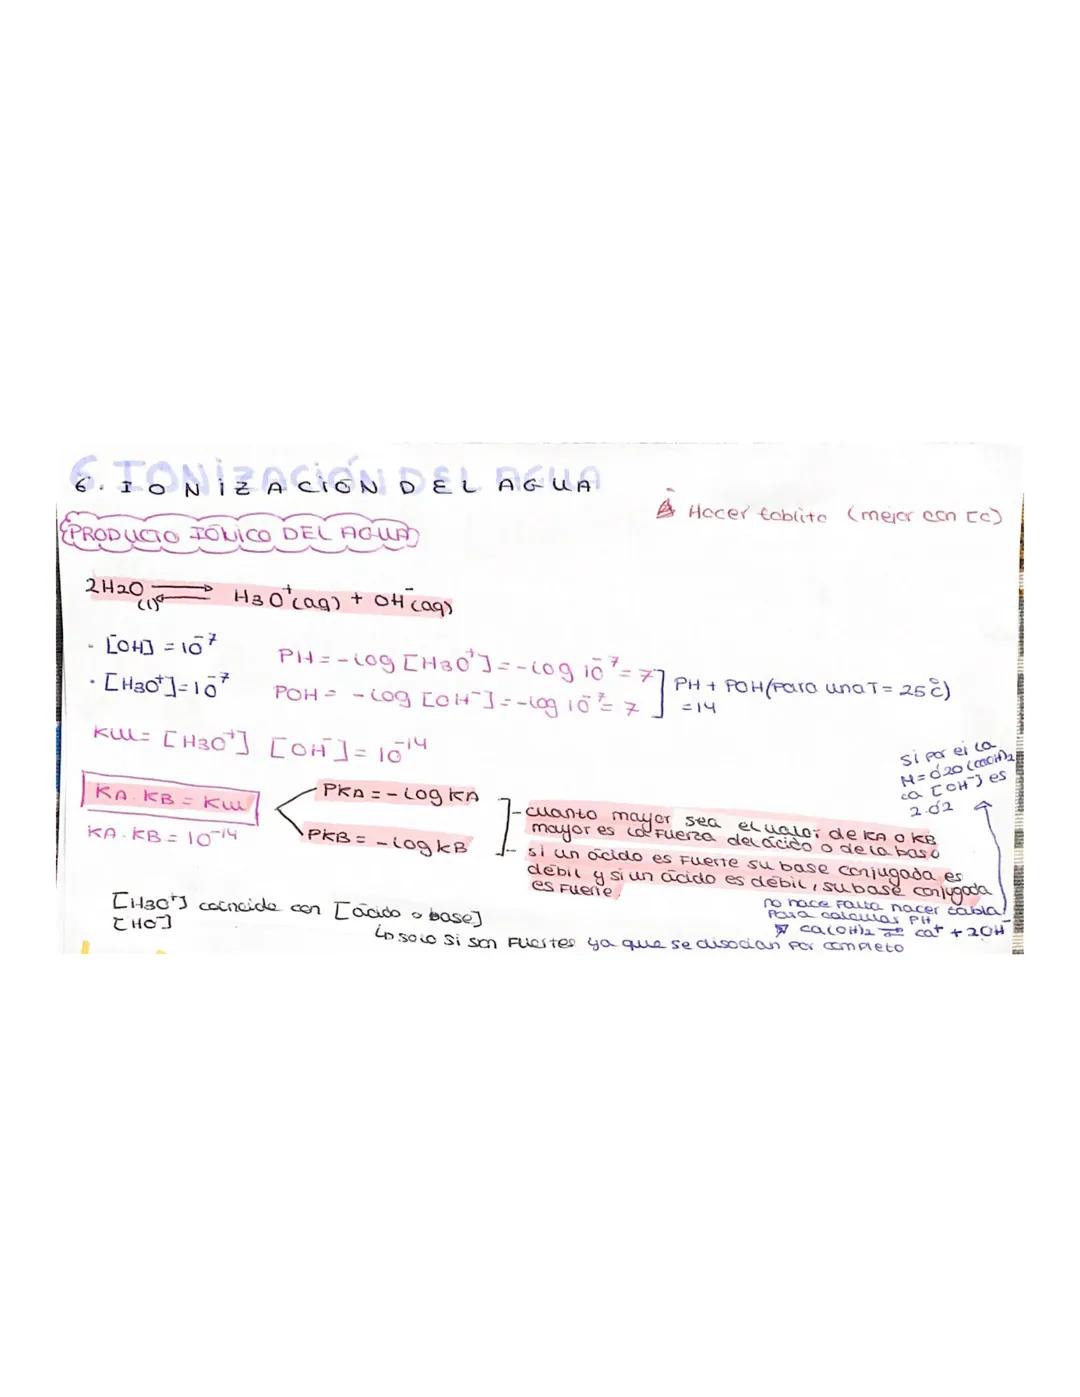 6. IONIZACIÓN DEL AGUA
Hacer tablita (mejor con [c])
PRODUCTO IÓNICO DEL AGUA
2H2O(l) ⇌ H3O⁺(aq) + OH⁻(aq)
· [OH⁻] = 10⁻⁷
· [H3O⁺] = 10⁻⁷
PH = -log [H3O⁺] = -log 10⁻⁷ = 7
POH = -log [OH⁻] = -log 10⁻⁷ = 7
PH + POH (para una T = 25°C)
= 14
KW = [H3O⁺] [OH⁻] = 10⁻¹⁴
KA · KB = KW
KA · KB = 10⁻¹⁴
PKA = -log KA
PKB = -log KB
- cuanto mayor sea el valor de KA o KB
mayor es la fuerza del ácido o de la base
- si un ácido es fuerte su base conjugada es
débil y si un ácido es débil, su base conjugada
es fuerte.
si por ej la
M = 0'20 Ca(OH)2
la [OH⁻] es
2·0'2
[H3O⁺] coincide con [ácido o base]
[HO⁻]
↳ solo si son fuertes ya que se disocian por completo
no hace falta hacer tabla
para calcular PH
Ca(OH)2 ⇌ Ca⁺ + 2OH⁻